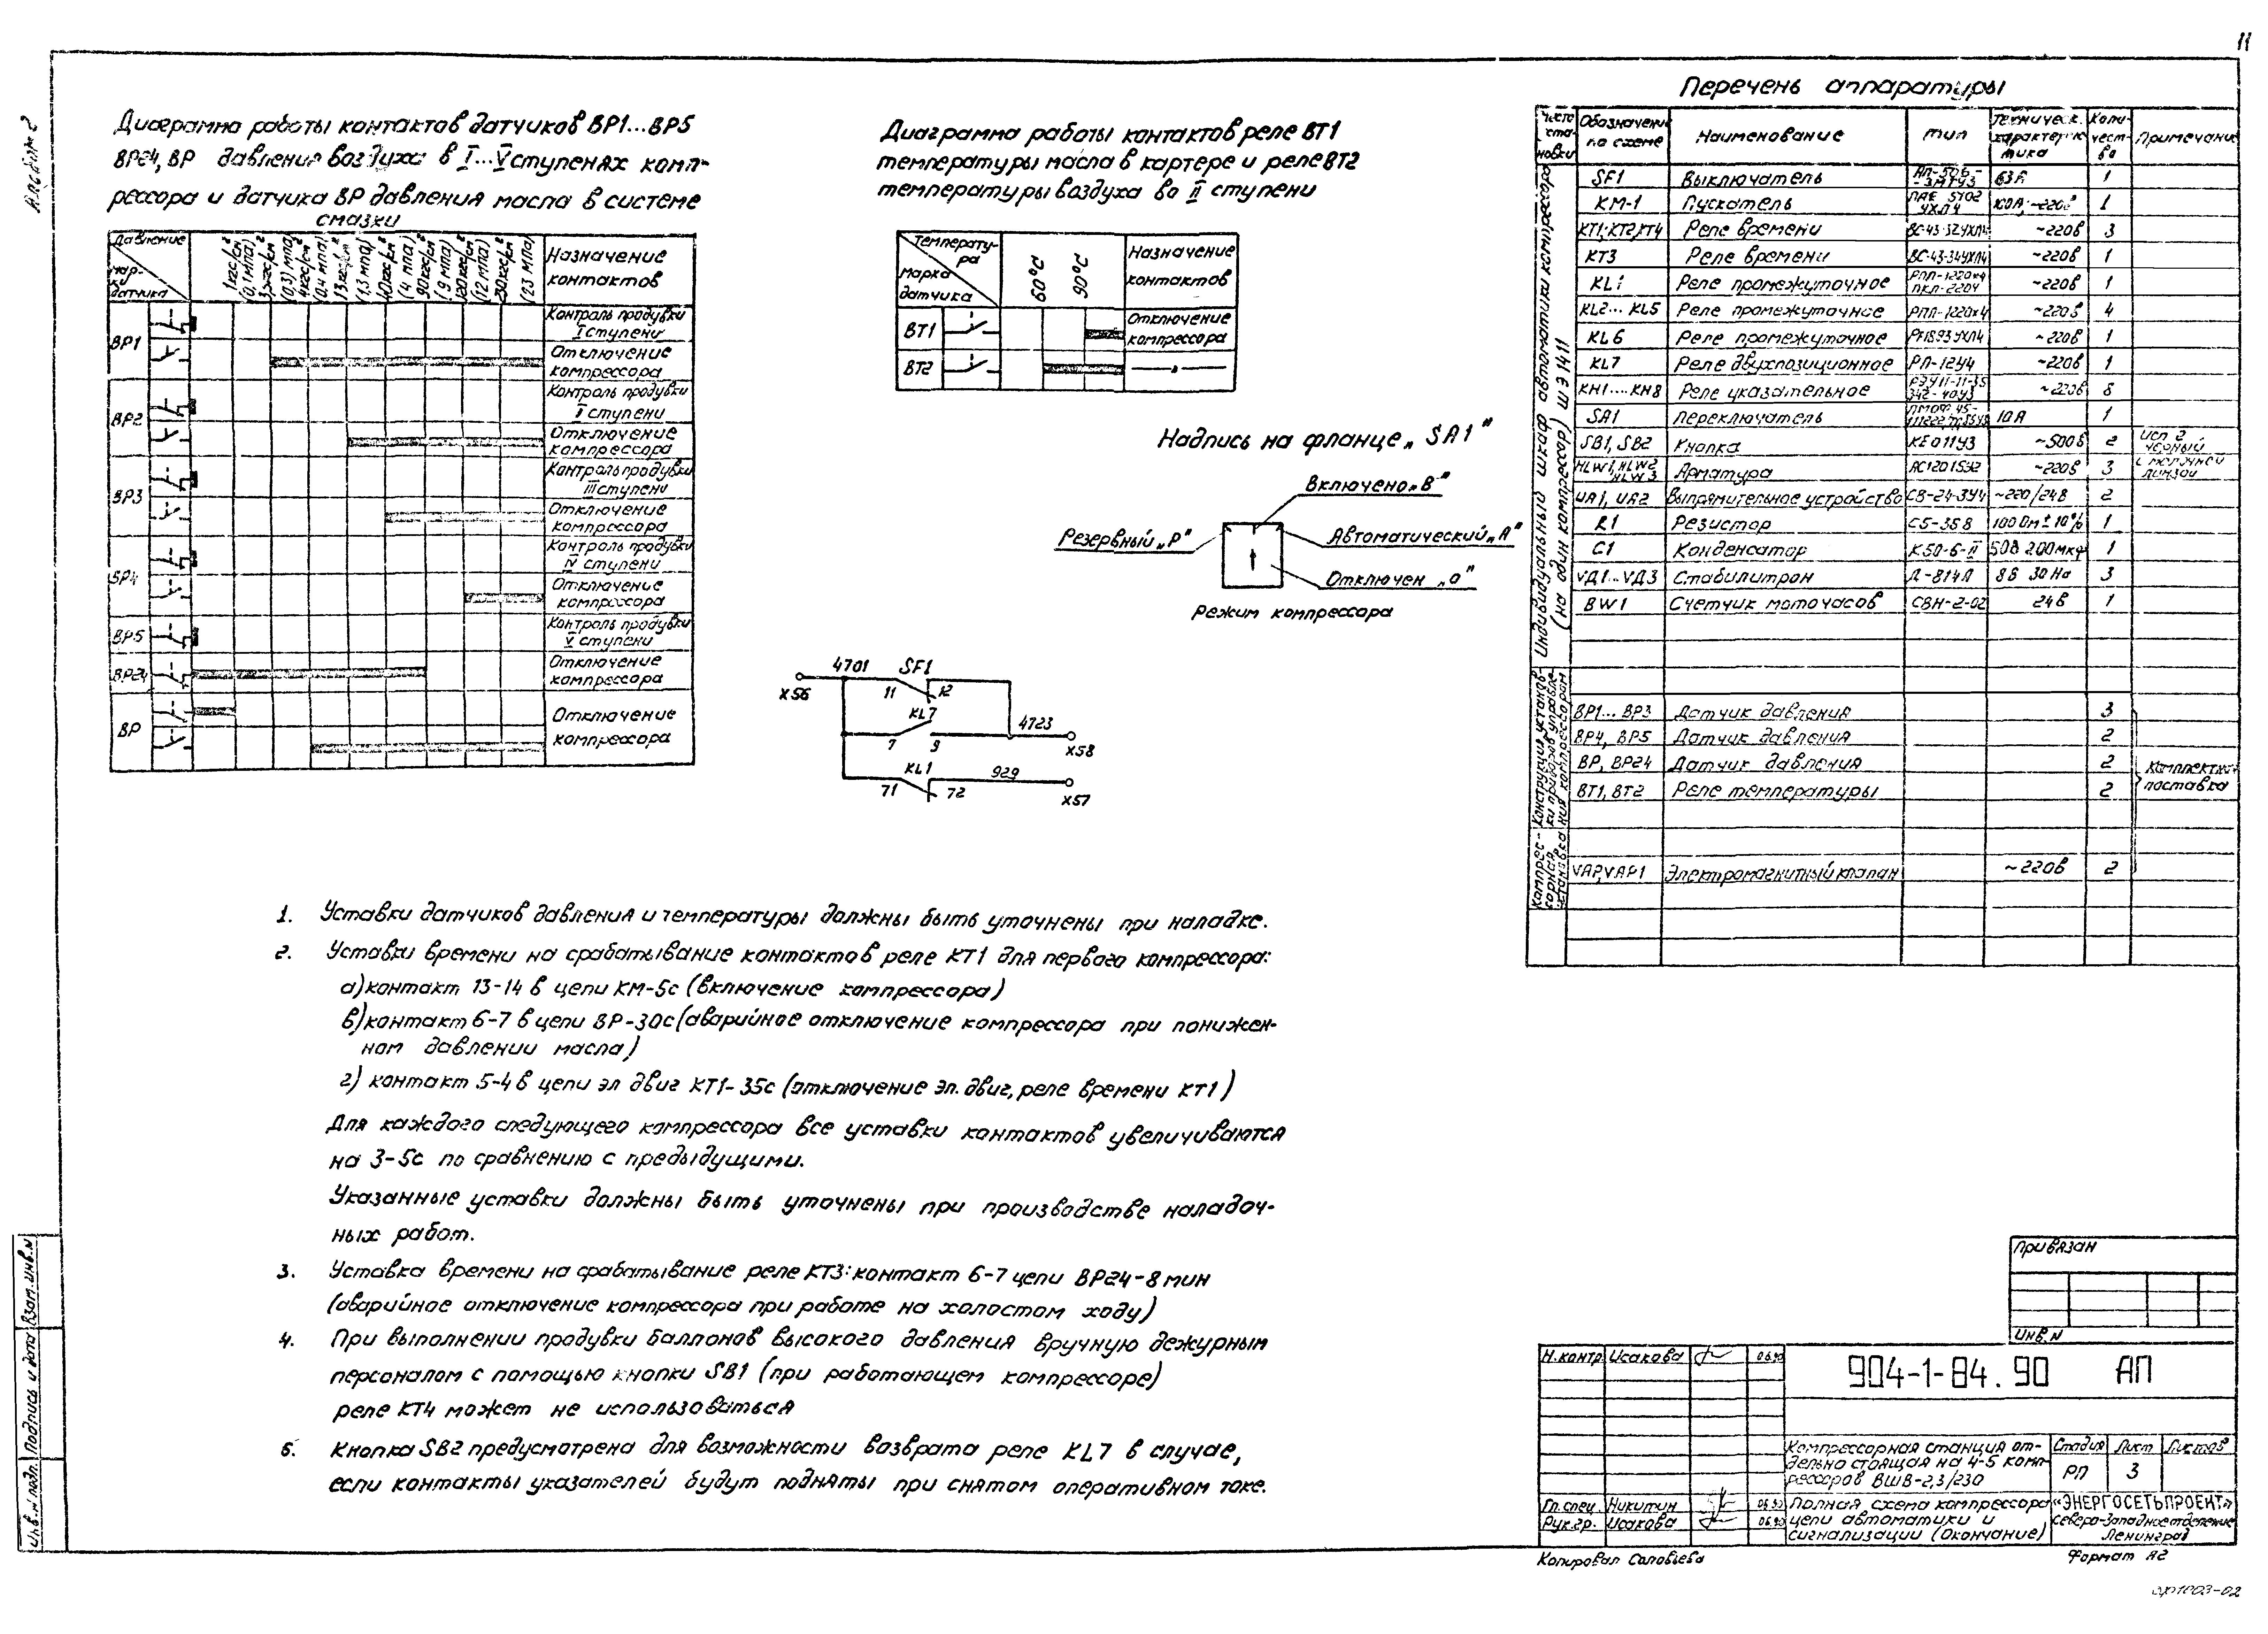 11
Альбом 2
Диаграмма работы контактов датчиков ВР1...ВР5
ВР24, ВР давления воздуха в I...V ступенях комп-
рессора и датчика ВР давления масла в системе
смазки
Давление
Мар-
ки
датчика
1кгс/см²
(0,1мпа)
(0,3) мпа)
4кгс/см²
(0,4 мпа)
13кгс/см²
(1,3 мпа)
40кгс/см²
(4 мпа)
90кгс/см²
(9 мпа)
120кгс/см²
(12 мпа)
230кгс/см²
(23 мпа)
Назначение
контактов
ВР1
Контроль продувки
I ступени
Отключение
компрессора
ВР2
Контроль продувки
II ступени
Отключение
компрессора
ВР3
Контроль продувки
III ступени
Отключение
компрессора
ВР4
Контроль продувки
IV ступени
Отключение
компрессора
ВР5
Контроль продувки
V ступени
ВР24
Отключение
компрессора
ВР
Отключение
компрессора
Диаграмма работы контактов реле ВТ1
температуры масла в картере и реле ВТ2
температуры воздуха во II ступени
Температу-
ра
Марка
датчика
60°С
90°С
Назначение
контактов
ВТ1
Отключение
компрессора
ВТ2
— " —
Надпись на фланце „SA1"
Включено „В"
Резервный „Р"
Автоматический „А"
Отключен „О"
Режим компрессора
4701
SF1
Х56
11
12
KL7
7
9
4723
Х58
KL1
71
72
929
Х57
1. Уставки датчиков давления и температуры должны быть уточнены при наладке.
2. Уставки времени на срабатывание контактов реле КТ1 для первого компрессора:
а) контакт 13-14 в цепи КМ-5с (включение компрессора)
в) контакт 6-7 в цепи ВР-30с (аварийное отключение компрессора при понижен-
ном давлении масла)
г) контакт 5-4 в цепи эл двиг КТ1-35с (отключение эл. двиг, реле времени КТ1)
Для каждого следующего компрессора все уставки контактов увеличиваются
на 3-5с по сравнению с предыдущими.
Указанные уставки должны быть уточнены при производстве наладоч-
ных работ.
3. Уставка времени на срабатывание реле КТ3: контакт 6-7 цепи ВР24-8 мин
(аварийное отключение компрессора при работе на холостом ходу)
4. При выполнении продувки баллонов высокого давления вручную дежурным
персоналом с помощью кнопки SB1 (при работающем компрессоре)
реле КТ4 может не использоваться
5. Кнопка SB2 предусмотрена для возможности возврата реле KL7 в случае,
если контакты указателей будут подняты при снятом оперативном токе.
Перечень аппаратуры
Место
уста-
новки
Обозначение
по схеме
Наименование
Тип
Техническ.
характерис-
тика
Коли-
чест-
во
Примечание
Индивидуальный шкаф автоматики компрессора
(на один компрессор) ШЭ 1411
SF1 Выключатель АП-50Б-3МТУ3 63А 1
КМ-1 Пускатель ПАЕ 5102 УХЛ4 100А; ~220в 1
КТ1; КТ2, КТ4 Реле времени ВС-43-32УХЛ4 ~220в 3
КТ3 Реле времени ВС-43-34УХЛ4 ~220в 1
KL1 Реле промежуточное РПЛ-1220х4 ПКЛ-2204 ~220в 1
KL2... KL5 Реле промежуточное РПЛ-1220х4 ~220в 4
KL6 Реле промежуточное ~220в 1
KL7 Реле двухпозиционное РП-12У4 ~220в 1
КН1....КН8 Реле указательное РЭУ11-11-35 ~220в 8
SA1 Переключатель 10А 1
SB1, SB2 Кнопка КЕ011У3 ~500в 2 Исп 2 черный
HLW1, HLW2 HLW3 Арматура АС12015У2 ~220в 3 с молочной линзой
UA1, UA2 Выпрямительное устройство СВ-24-3У4 ~220/24в 2
R1 Резистор С5-35В 100 Ом±10% 1
С1 Конденсатор К50-6-II 50в 200мкф 1
VД1...VД3 Стабилитрон Д-814А 8в 3
BW1 Счетчик моточасов СВН-2-02 24в 1
ВР1... ВР3 Датчик давления 3
ВР4, ВР5 Датчик давления 2
ВР, ВР24 Датчик давления 2
ВТ1, ВТ2 Реле температуры 2
Комплектн.
поставка
VAP, VAP1 Электромагнитный клапан ~220в 2
Привязан
Инв.N
Н.контр. Исакова 06.90
904-1-84.90 АП
Компрессорная станция от-
дельно стоящая на 4-5 комп-
рессоров ВШВ-2,3/230
Стадия Лист Листов
РП 3
Гл.спец. Никитин 06.90
Рук.гр. Исакова 06.90
Полная схема компрессора
цепи автоматики и
сигнализации (Окончание)
«ЭНЕРГОСЕТЬПРОЕКТ»
Северо-Западное отделение
Ленинград
Копировал Соловьева
Формат А2
Инв.N подл. Подпись и дата Взам.инв.N